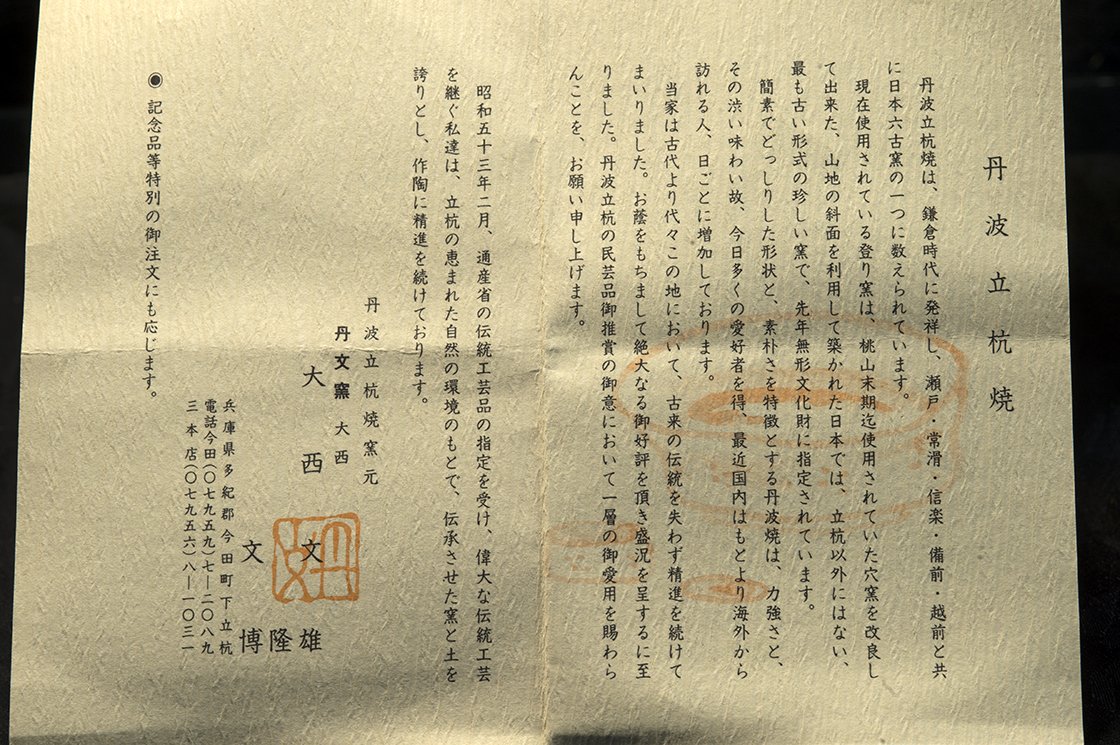 丹波立杭焼
丹波立杭焼は、鎌倉時代に発祥し、瀬戸・常滑・信楽・備前・越前と共
に日本六古窯の一つに数えられています。
現在使用されている登り窯は、桃山末期迄使用されていた穴窯を改良し
て出来た、山地の斜面を利用して築かれた日本では、立杭以外にはない、
最も古い形式の珍しい窯で、先年無形文化財に指定されています。
簡素でどっしりした形状と、素朴さを特徴とする丹波焼は、力強さと、
その渋い味わい故、今日多くの愛好者を得、最近国内はもとより海外から
訪れる人、日ごとに増加しております。
当家は古代より代々この地において、古来の伝統を失わず精進を続けて
まいりました。お蔭をもちまして絶大なる御好評を頂き盛況を呈するに至
りました。丹波立杭の民芸品御推賞の御意において一層の御愛用を賜わら
んことを、お願い申し上げます。
昭和五十三年二月、通産省の伝統工芸品の指定を受け、偉大な伝統工芸
を継ぐ私達は、立杭の恵まれた自然の環境のもとで、伝承させた窯と土を
誇りとし、作陶に精進を続けております。
丹波立杭焼窯元
丹文窯 大西
大西 文 雄
隆
文 博
兵庫県多紀郡今田町下立杭
電話今田(〇七九五九)七―二〇八九
三本店(〇七九五六)八―一〇三一
◉ 記念品等特別の御注文にも応じます。